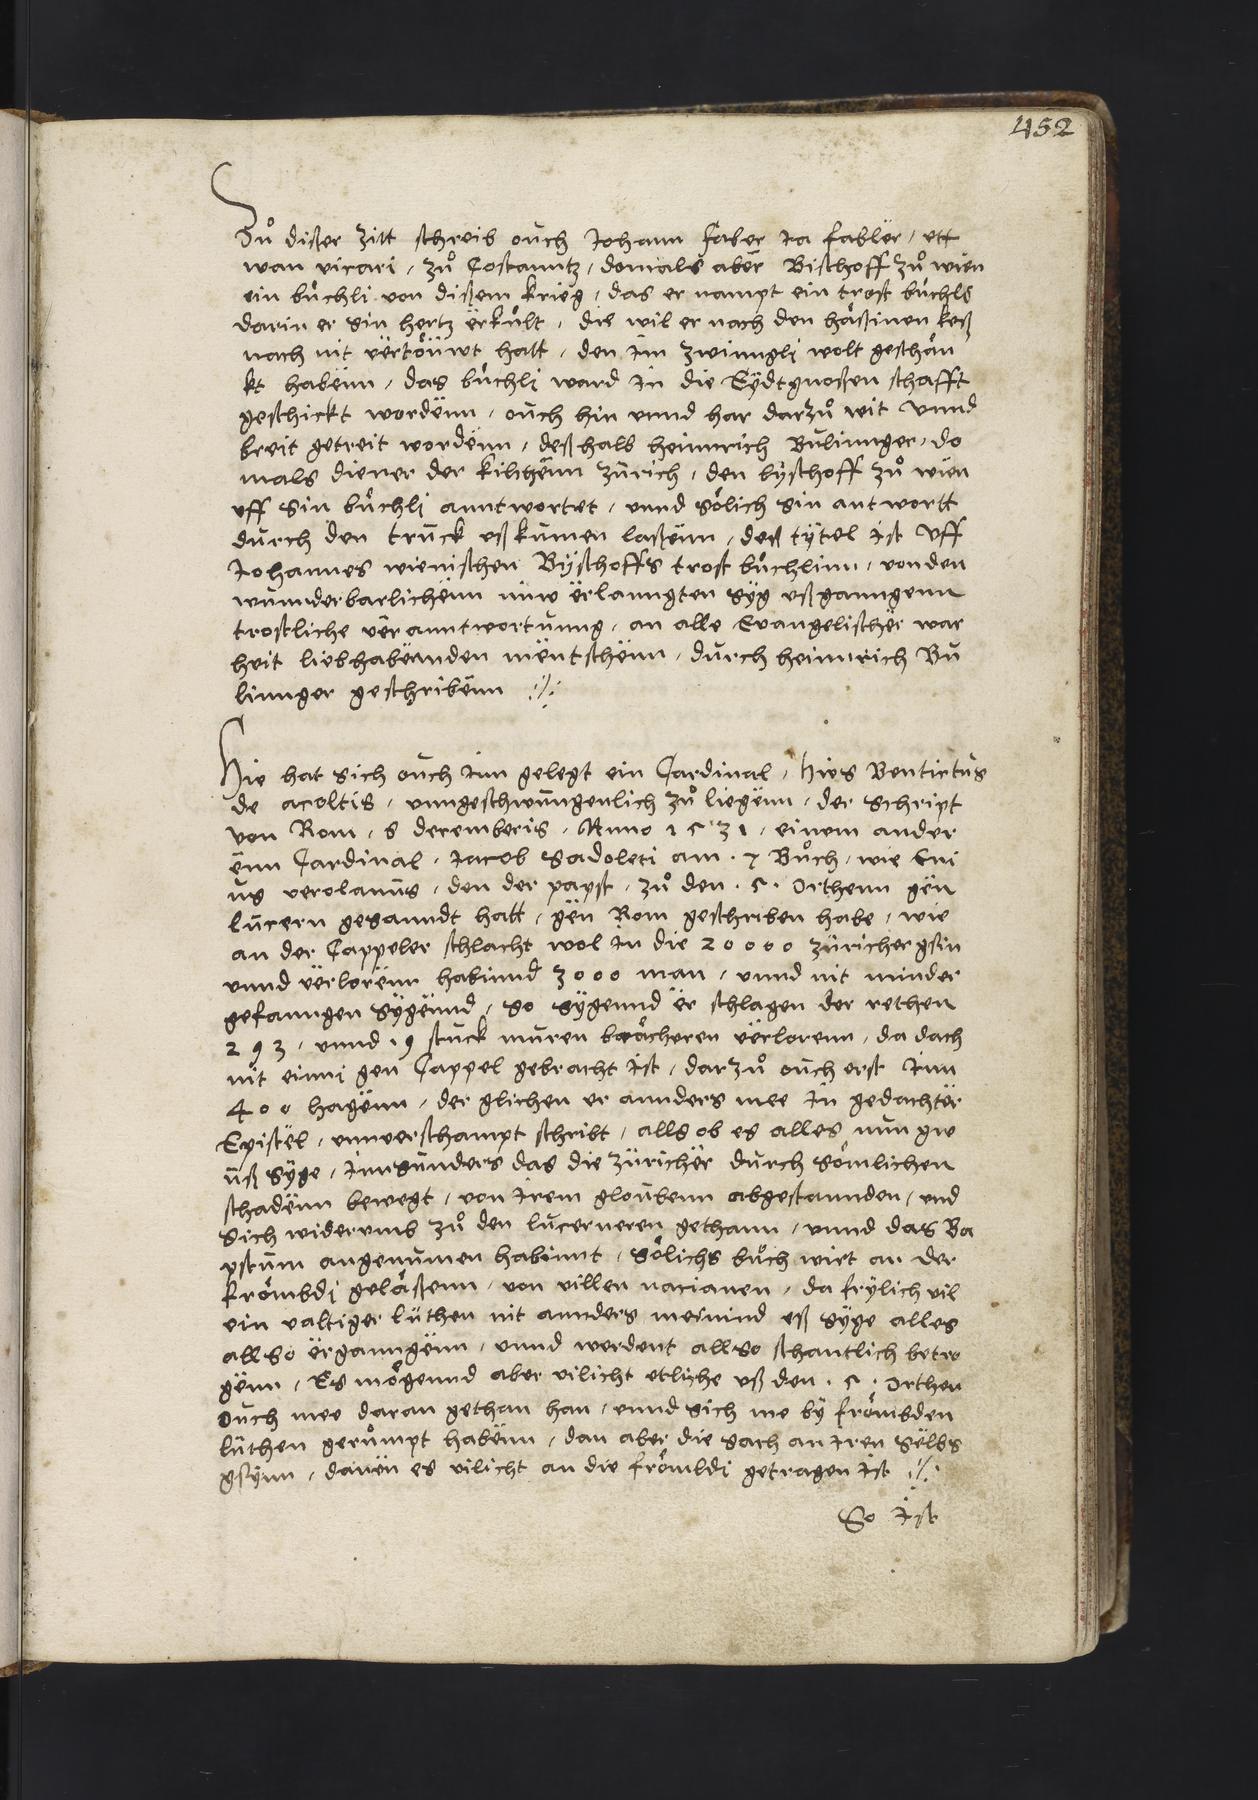 452
Zuͦ diszer zitt schreib ouch Johann faber ja fabler, ett
wan vicari, zuͦ Costanntz, domals aber Bischoff zuͦ wien
ein büchli von diszem krieg, das er nampt ein trost büchli
darin er sin hertz erkült, die wil er nach den häszinen kesz
nach nit vertöüwt hatt, den im zwinngli wolt geschän
kt habenn, das büchli ward in die Eydtgnoszen schafft
geschickt wordenn, ouch hin vnnd har darzuͦ wit vnnd
breit getreit wordenn, deszhalb heinnrich Bulinnger, do
mals diener der kilchenn zürich, den byschoff zuͦ wien
vff sin büchli anntwortet, vnnd sölich sin antwortt
durch den truck vszkumen laszenn, desz tytel ist vff
Johannes wienischen Byschoffs trost büchlinn, von den
wunnderbarlichenn nüw erlanngten syg vszganngenn
trostliche veranntwortunng, an alle Evangelischer war
heit liebhabernden mentschenn, durch heinnrich Bu
linnger geschribenn ./.
Hie hat sich ouch inn gelegt ein Cardinal, hies Bentictus
de acoltis, vnngeschwungenlich zuͦ liegenn, der schript
von Rom, 6 decemberis, Anno 1531, einem ander
enn Cardinal, Jacob Sadoleti am . 7 Buͦch, wie Eni
us verolanus, den der papst, zuͦ den . 5 . orthenn gen
lucern gesanndt hatt, gen Rom geschriben habe, wie
an der Cappeler schlacht wol in die 20000 züricher gsin
vnnd verlorenn habinnd 3000 man, vnnd nit minder
gefanngen sygennd, so sygennd er schlagen der rethen
293, vnnd 19 stuck muren brächeren verlorenn, da dach
nit einni gen Cappel gebracht ist, darzuͦ ouch erst inn
400 hagenn, der glichen er annders mee in gedachter
Epistel, vnnverschampt schribt, alls ob es alles nun gw
üsz syge, innsunders das die züricher durch sömlichen
schadenn bewegt, von irem gloubenn abgestannden, vnd
sich widerumb zuͦ den lucerneren gethann, vnnd das Ba
pstum angenumen habinnt, sölichs buͦch wirt an der
frömbdi geläszenn, von villen nacianen, da frylich vil
ein valtiger lüthen nit annders meinind esz syge alles
allso erganngenn, vnnd werdent allso schantlich betro
genn, Es mögennd aber vilicht etliche vsz den . 5 . orthen
Ouch mee daran gethan han, vnnd sich me by frömbden
lüthen gerümpt habenn, dan aber die sach an iren selbs
gsynn, danen es vilicht an die frömbdi getragen ist ./.
So ist